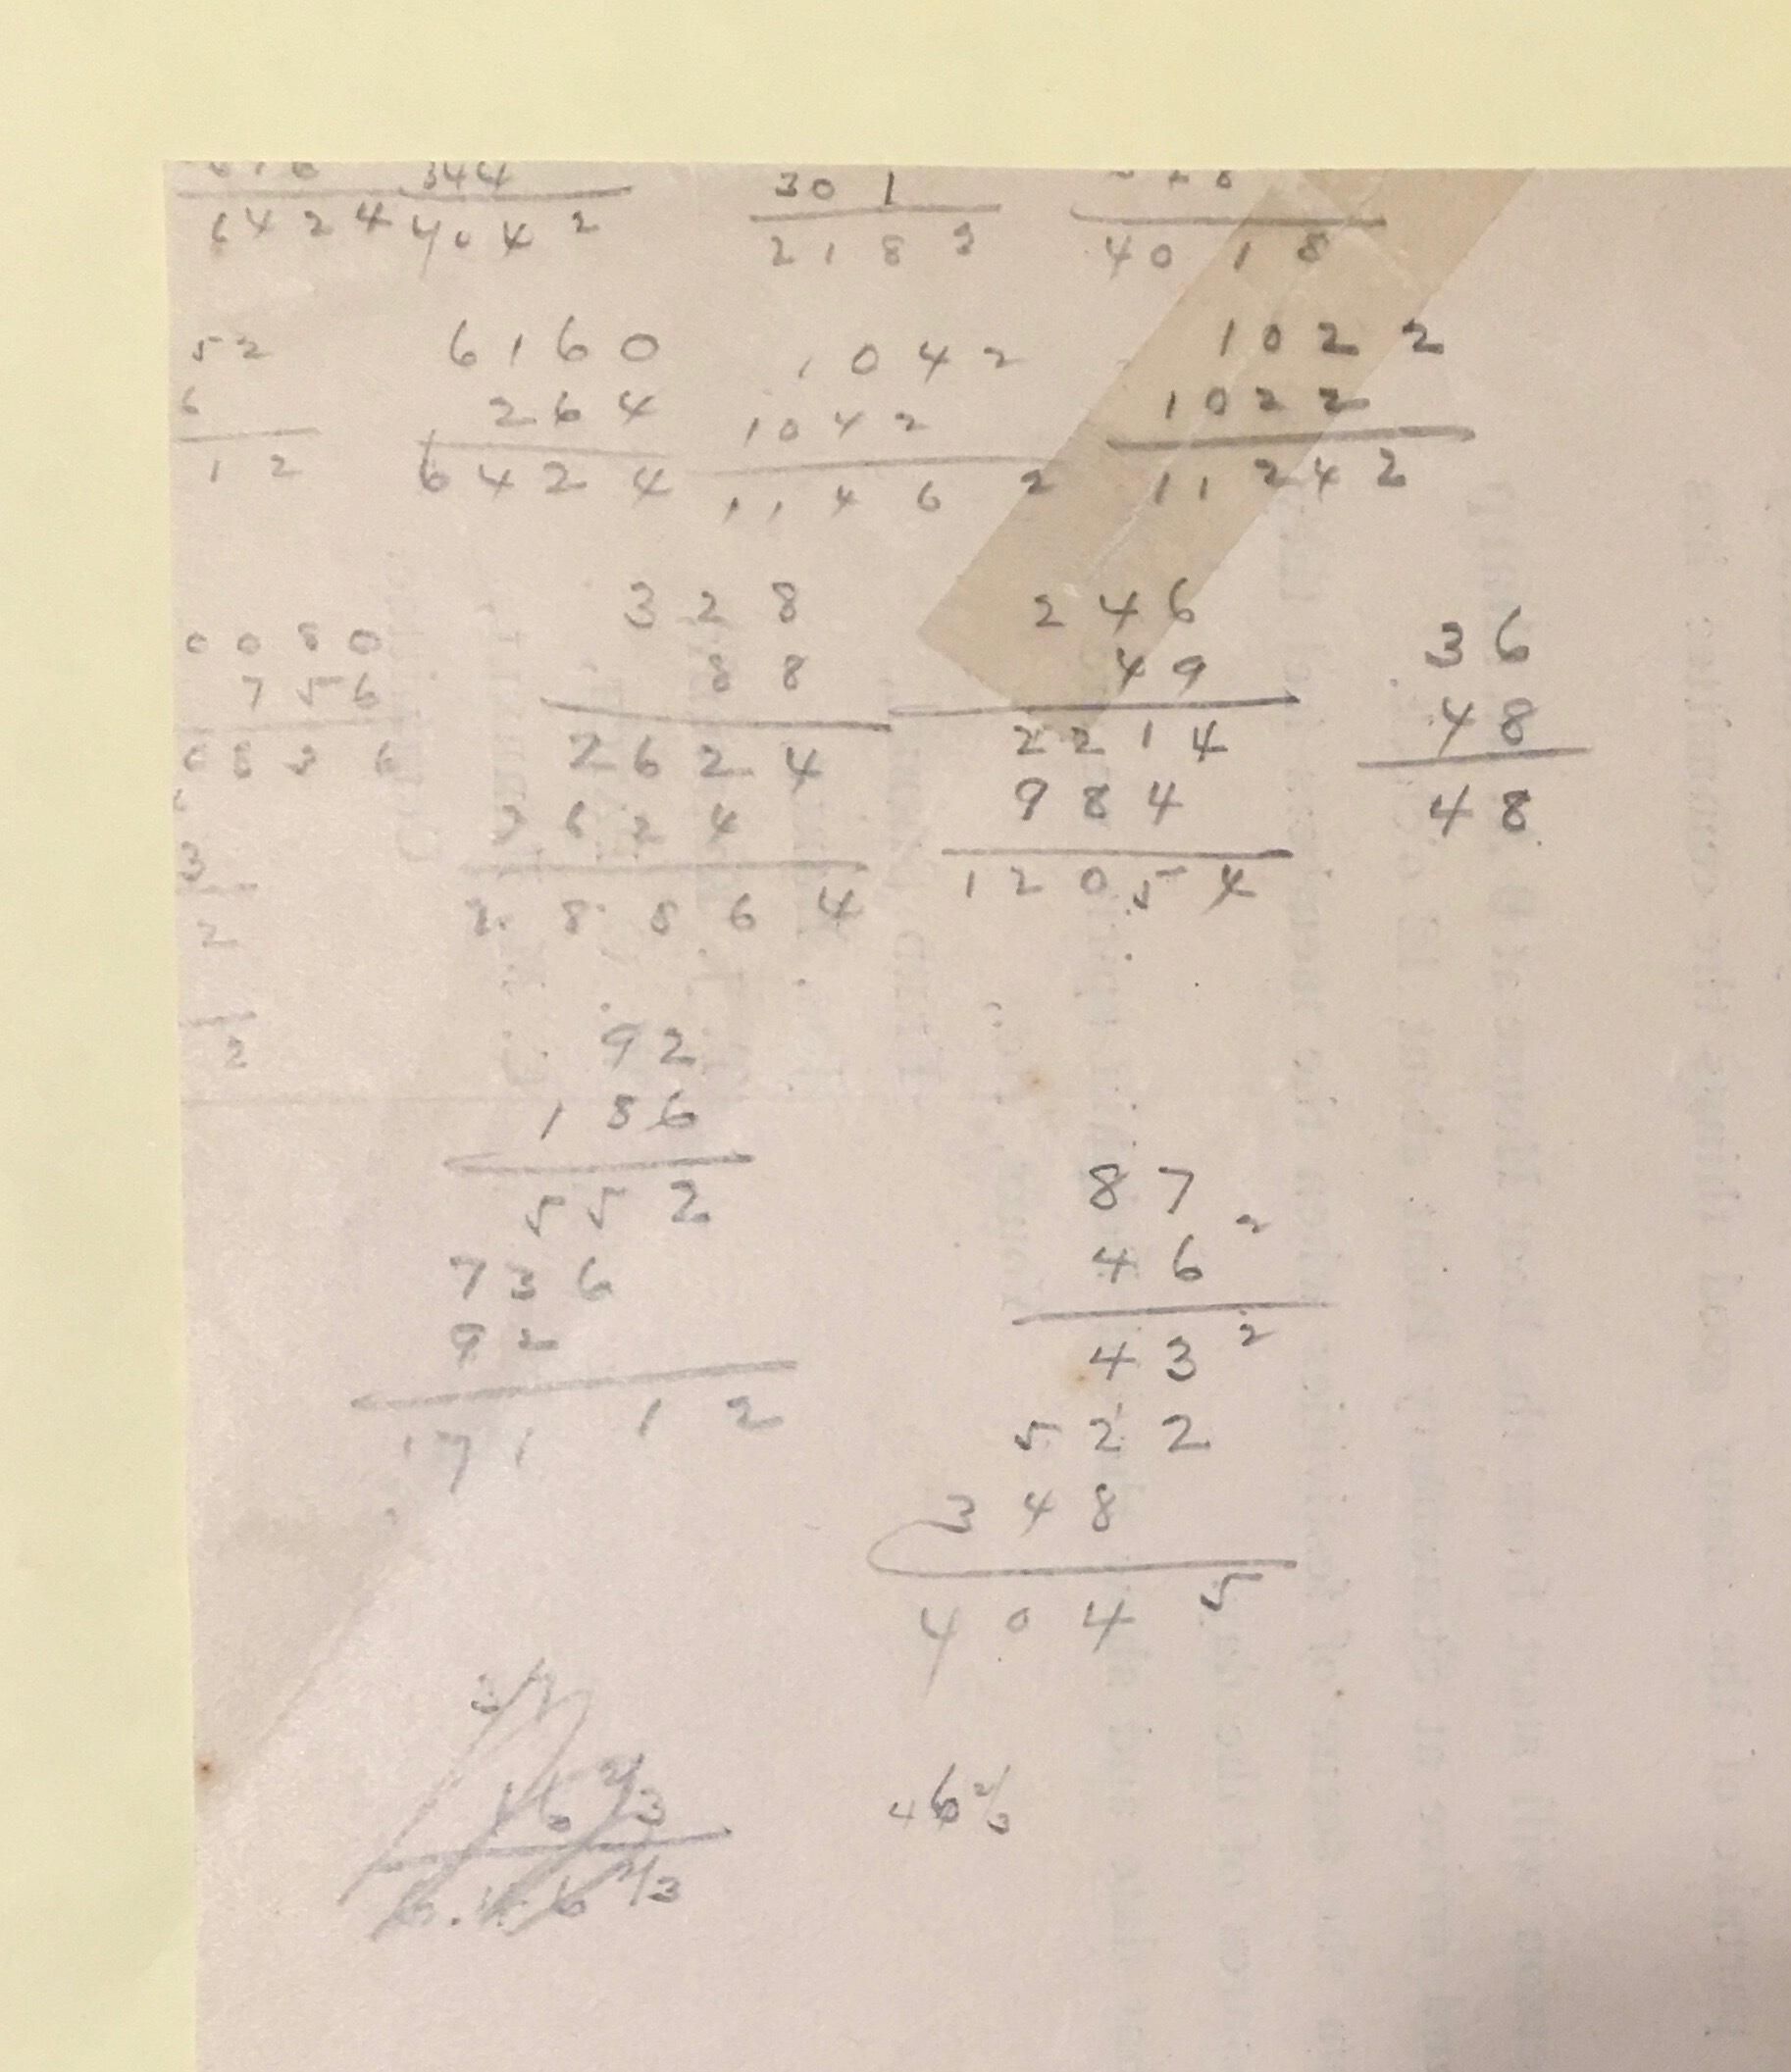 344
301
6424 4042 2183 4018
52 6160 1042 1022
6 264 1042 1022
12 6424 11462 11242
328 246 36
0080 88 49 48
756 2624 2214 48
2624 984
3 28864 12054
2
92
2
186
552 87
46 2
736 43 2
92 522
17112 348
4045
16 2/3 46 2/3
6.46 2/3